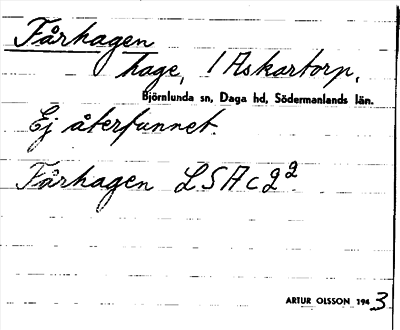 Fårhagen
hage, 1 Askartorp,
Björnlunda sn, Daga hd, Södermanlands län.
Ej återfunnet.
Fårhagen LSA C 2²
ARTUR OLSSON 1943